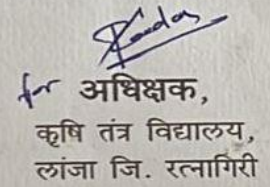 for अधिक्षक,
कृषि तंत्र विद्यालय,
लांजा जि. रत्नागिरी